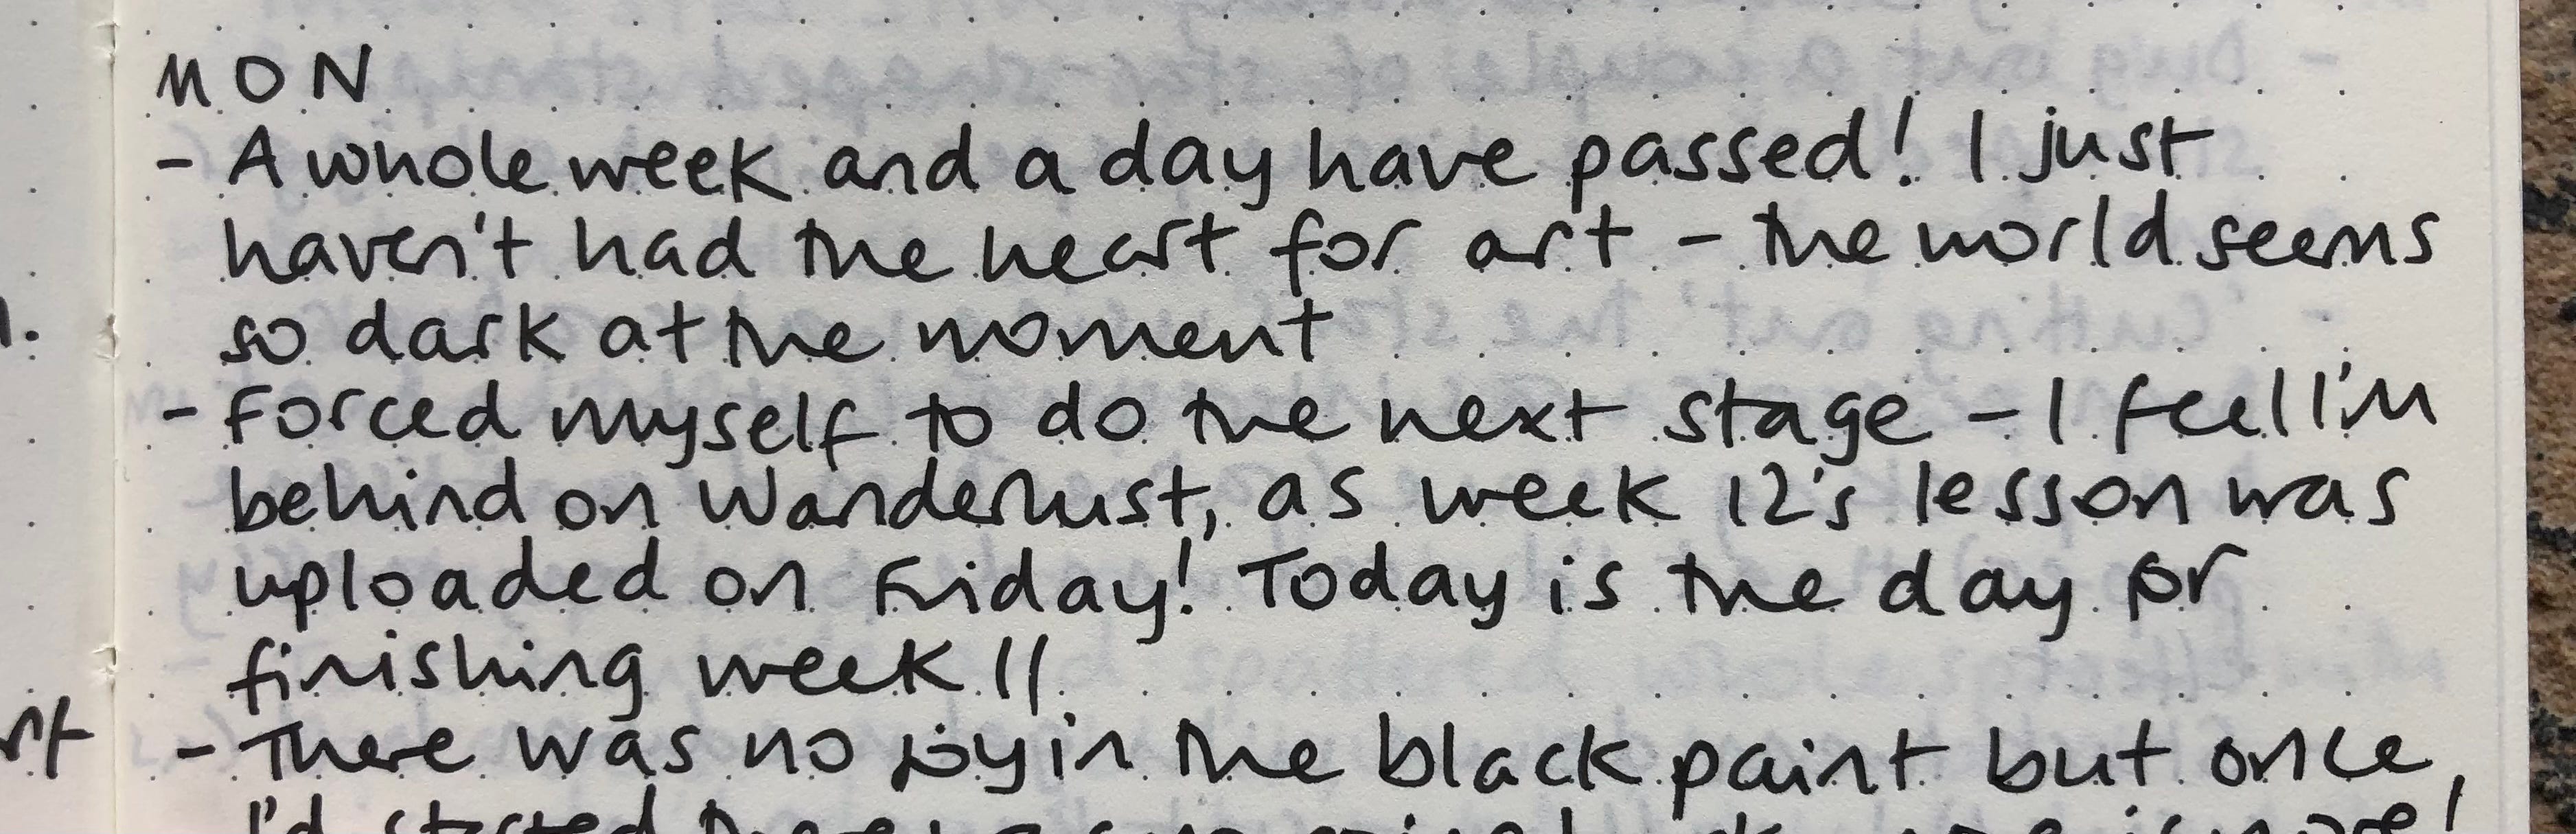 MON
- A whole week and a day have passed! I just
haven't had the heart for art - the world seems
so dark at the moment
- Forced myself to do the next stage - I feel I'm
behind on Wanderlust, as week 12's lesson was
uploaded on Friday! Today is the day for
finishing week 11
- There was no joy in the black paint but once
I'd started there was